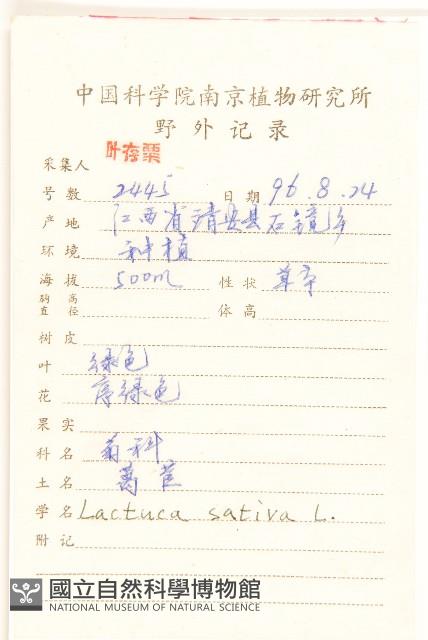 中国科学院南京植物研究所
野外记录
采集人 叶存栗
号数 2445 日期 96.8.24
产地 江西省靖安县石镜乡
环境 种植
海拔 500m 性状 草本
胸高直径 体高
树皮
叶 绿色
花 绿色
果实
科名 菊科
土名 莴苣
学名 Lactuca sativa L.
附记
國立自然科學博物館
NATIONAL MUSEUM OF NATURAL SCIENCE